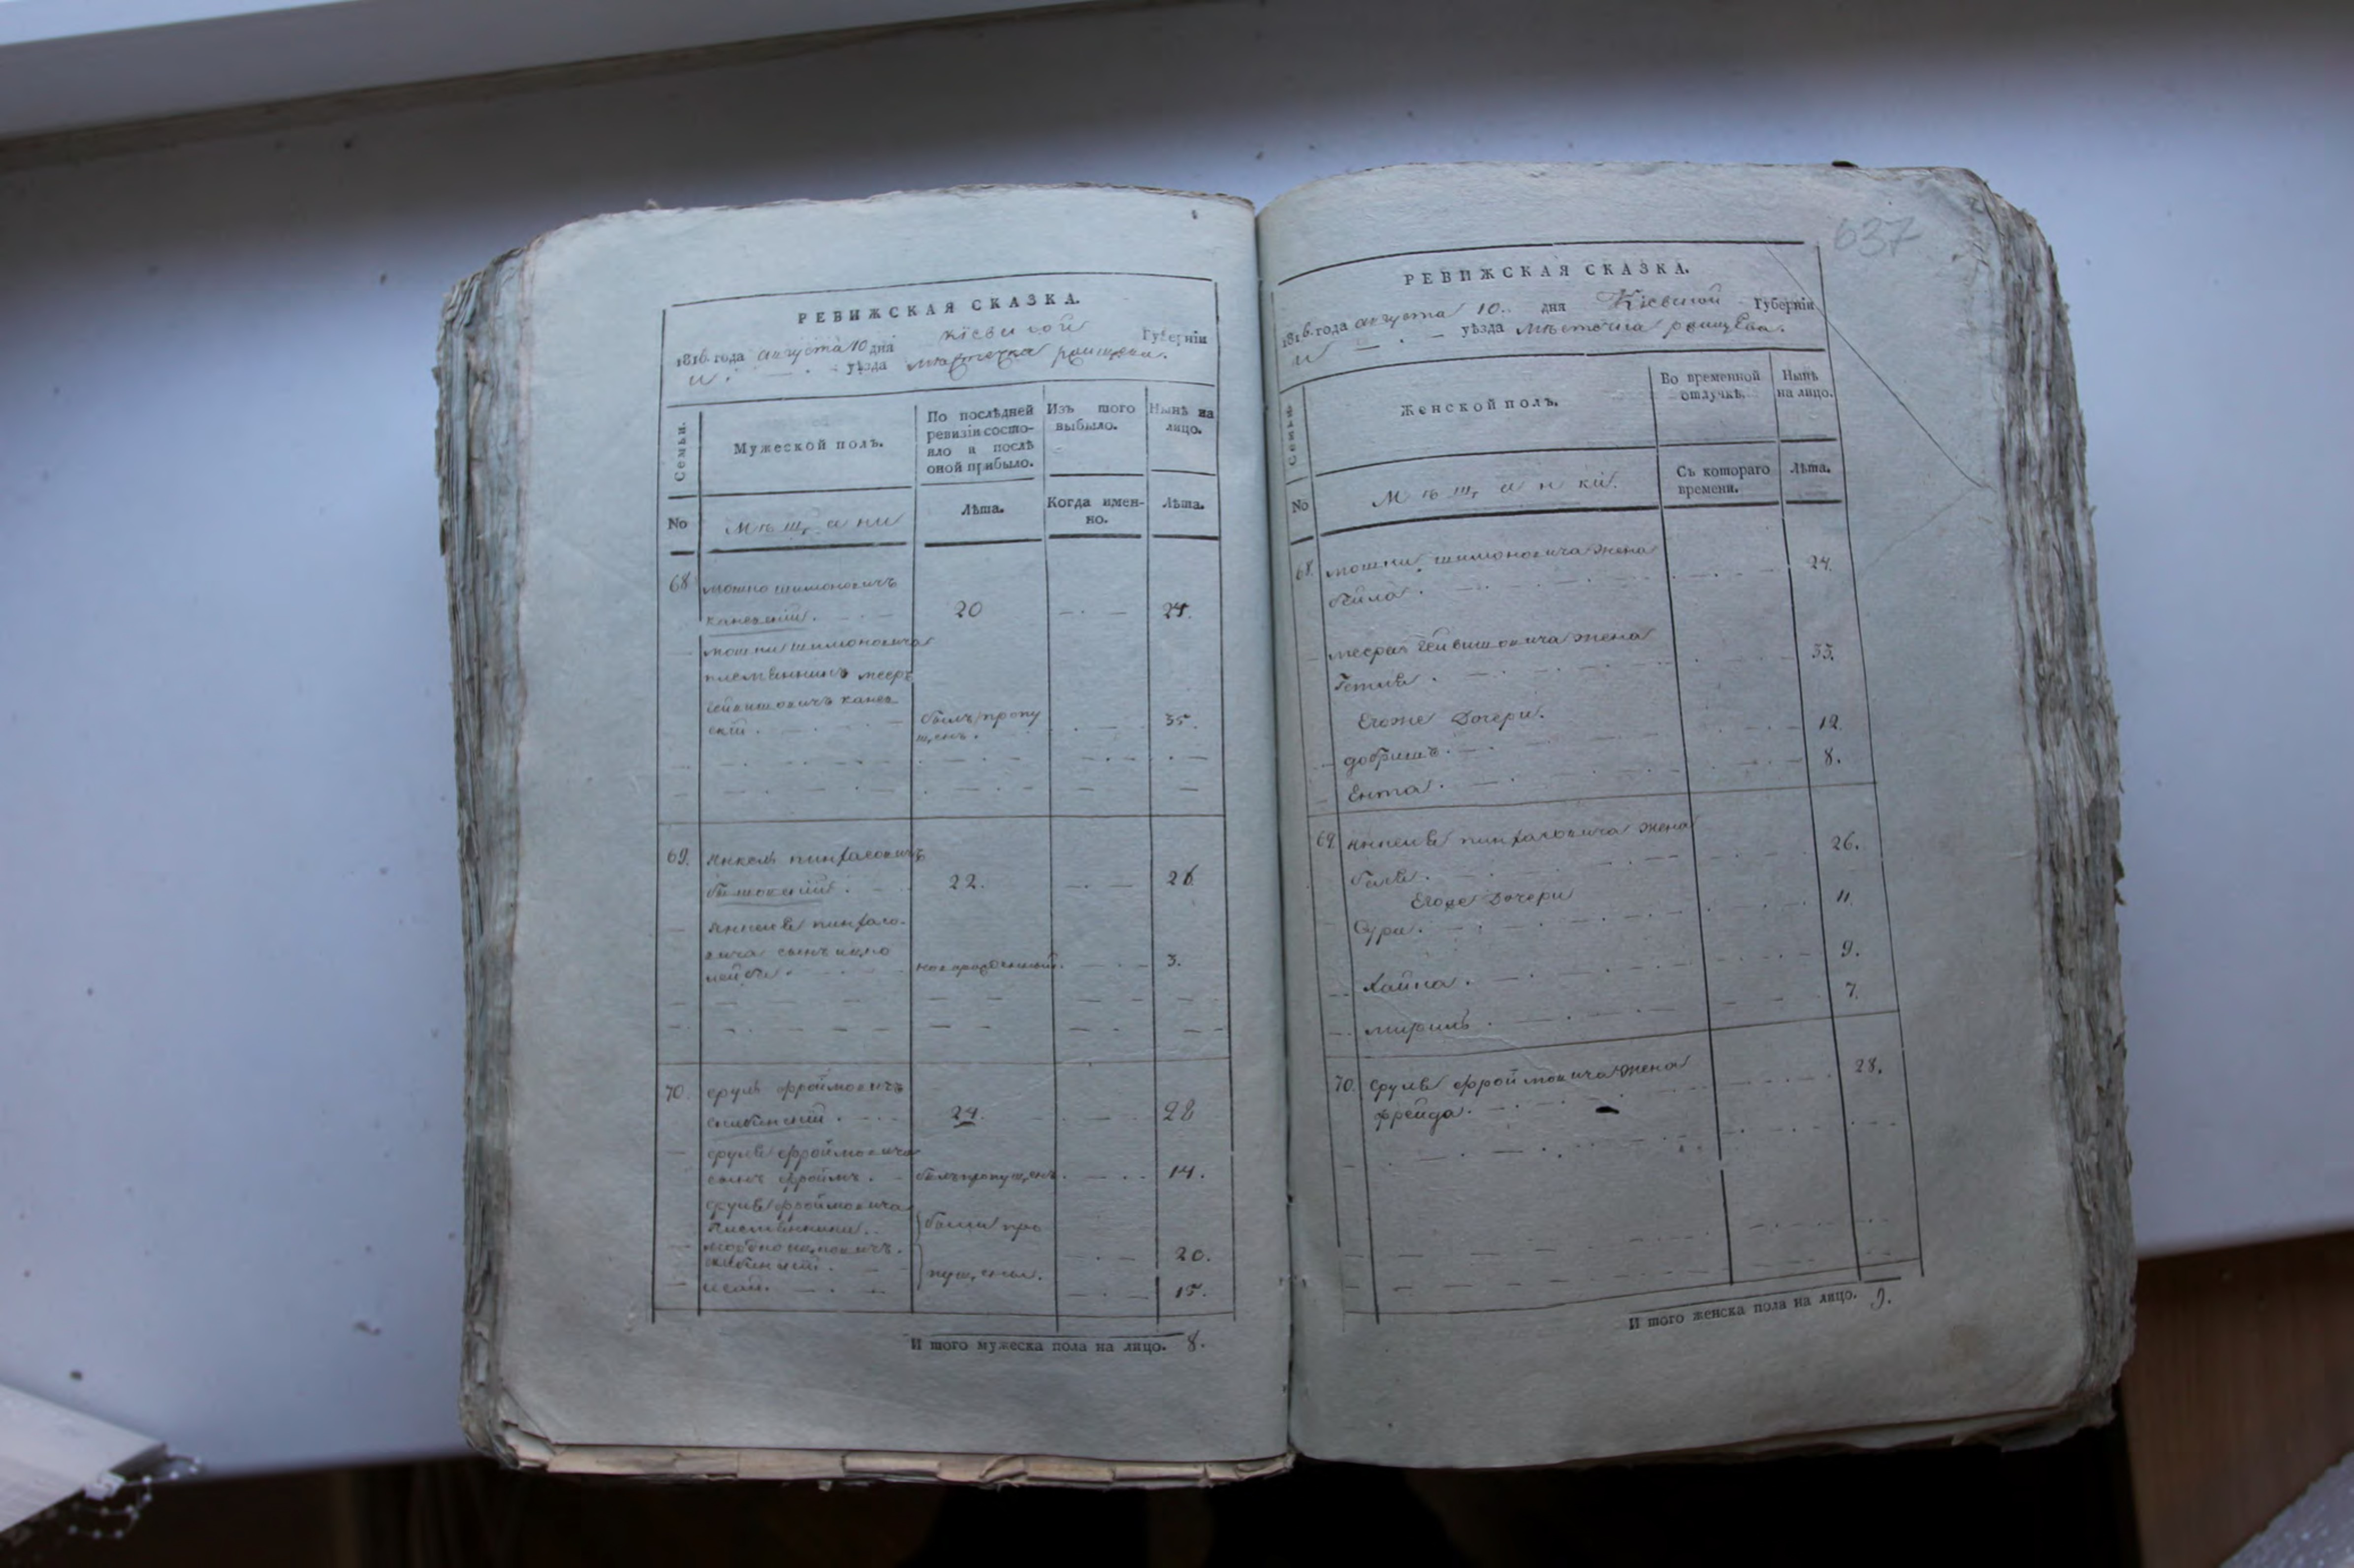 РЕВИЖСКАЯ СКАЗКА.
1816 года августа 10 дня Кіевской Губерніи
и. уѣзда мѣстечка
Семьи.
Мужеской полъ.
По послѣдней ревизіи состояло и послѣ оной прибыло.
Изъ того выбыло.
Нынѣ на лицо.
No
Мѣщани
Лѣта.
Когда именно.
Лѣта.
68 мошко шимоновичъ
каневский. 20 24.
мошки шимоновича
племѣнникъ меер
каневский. былъ пропущенъ. 35.
69. янкель пинхасовичъ
22. 26
янкеля пинхасовича сынъ ицко
лейба. новорожденный. 3.
70. сруль фроймовичъ
24. 28
сруля фроймовича
сынъ фроймъ. былъ пропущенъ. 14.
сруля фроймовича
племѣнники. были про
20.
пущены.
исай. 15.
И того мужеска пола на лицо. 8.
637
РЕВИЖСКАЯ СКАЗКА.
1816. года августа 10. дня Кіевской Губерніи
и уѣзда мѣстечка
Семьи
Женской полъ.
Во временной отлучкѣ.
Нынѣ на лицо.
No
Мѣщанки.
Съ котораго времени.
Лѣта.
68. мошки шимоновича жена
бейла. 24.
жена
Гетля. 33.
Егоже Дочери.
добришъ. 12.
Ента. 8.
69 янкеля пинхасовича жена
26.
Егоже Дочери
Сури. 11.
Хайка. 9.
мириль. 7.
70. Сруля фроймовича жена
фрейда. 28.
И того женска пола на лицо. 9.